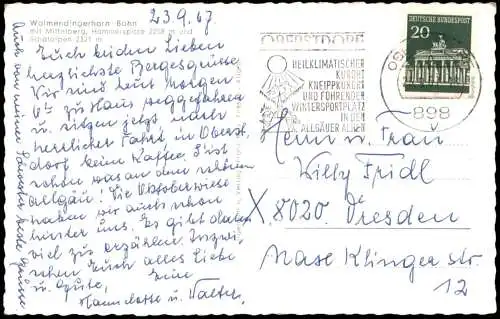 Walmendingerhorn-Bahn
mit Mittelberg, Hammerspitze 2258 m und
2321 m
23.9.67
Euch beiden Lieben
herzlichste Bergesgrüsse.
Wir sind heut morgen
zu Haus weggefahren
u. sitzen jetzt nach
herrlicher Fahrt in Oberst
dorf beim Kaffee. S'ist
schon was an dem schönen
Allgäu! Die Oktoberwiese
haben wir auch schon
hinter uns. Es gibt dann
viel zu erzählen. Inzwi-
schen Euch alles Liebe
u. Gute, Eure
Hannelotte u. Walter.
Auch von meiner Schwester beste Grüsse
OBERSTDORF
HEILKLIMATISCHER
KURORT
KNEIPPKURORT
UND FÜHRENDER
WINTERSPORTPLATZ
IN DEN
ALLGÄUER ALPEN
DEUTSCHE BUNDESPOST
20
898
Herrn u. Frau
Willy Fridl
X 8020 Dresden
Nase Klinger str.
12